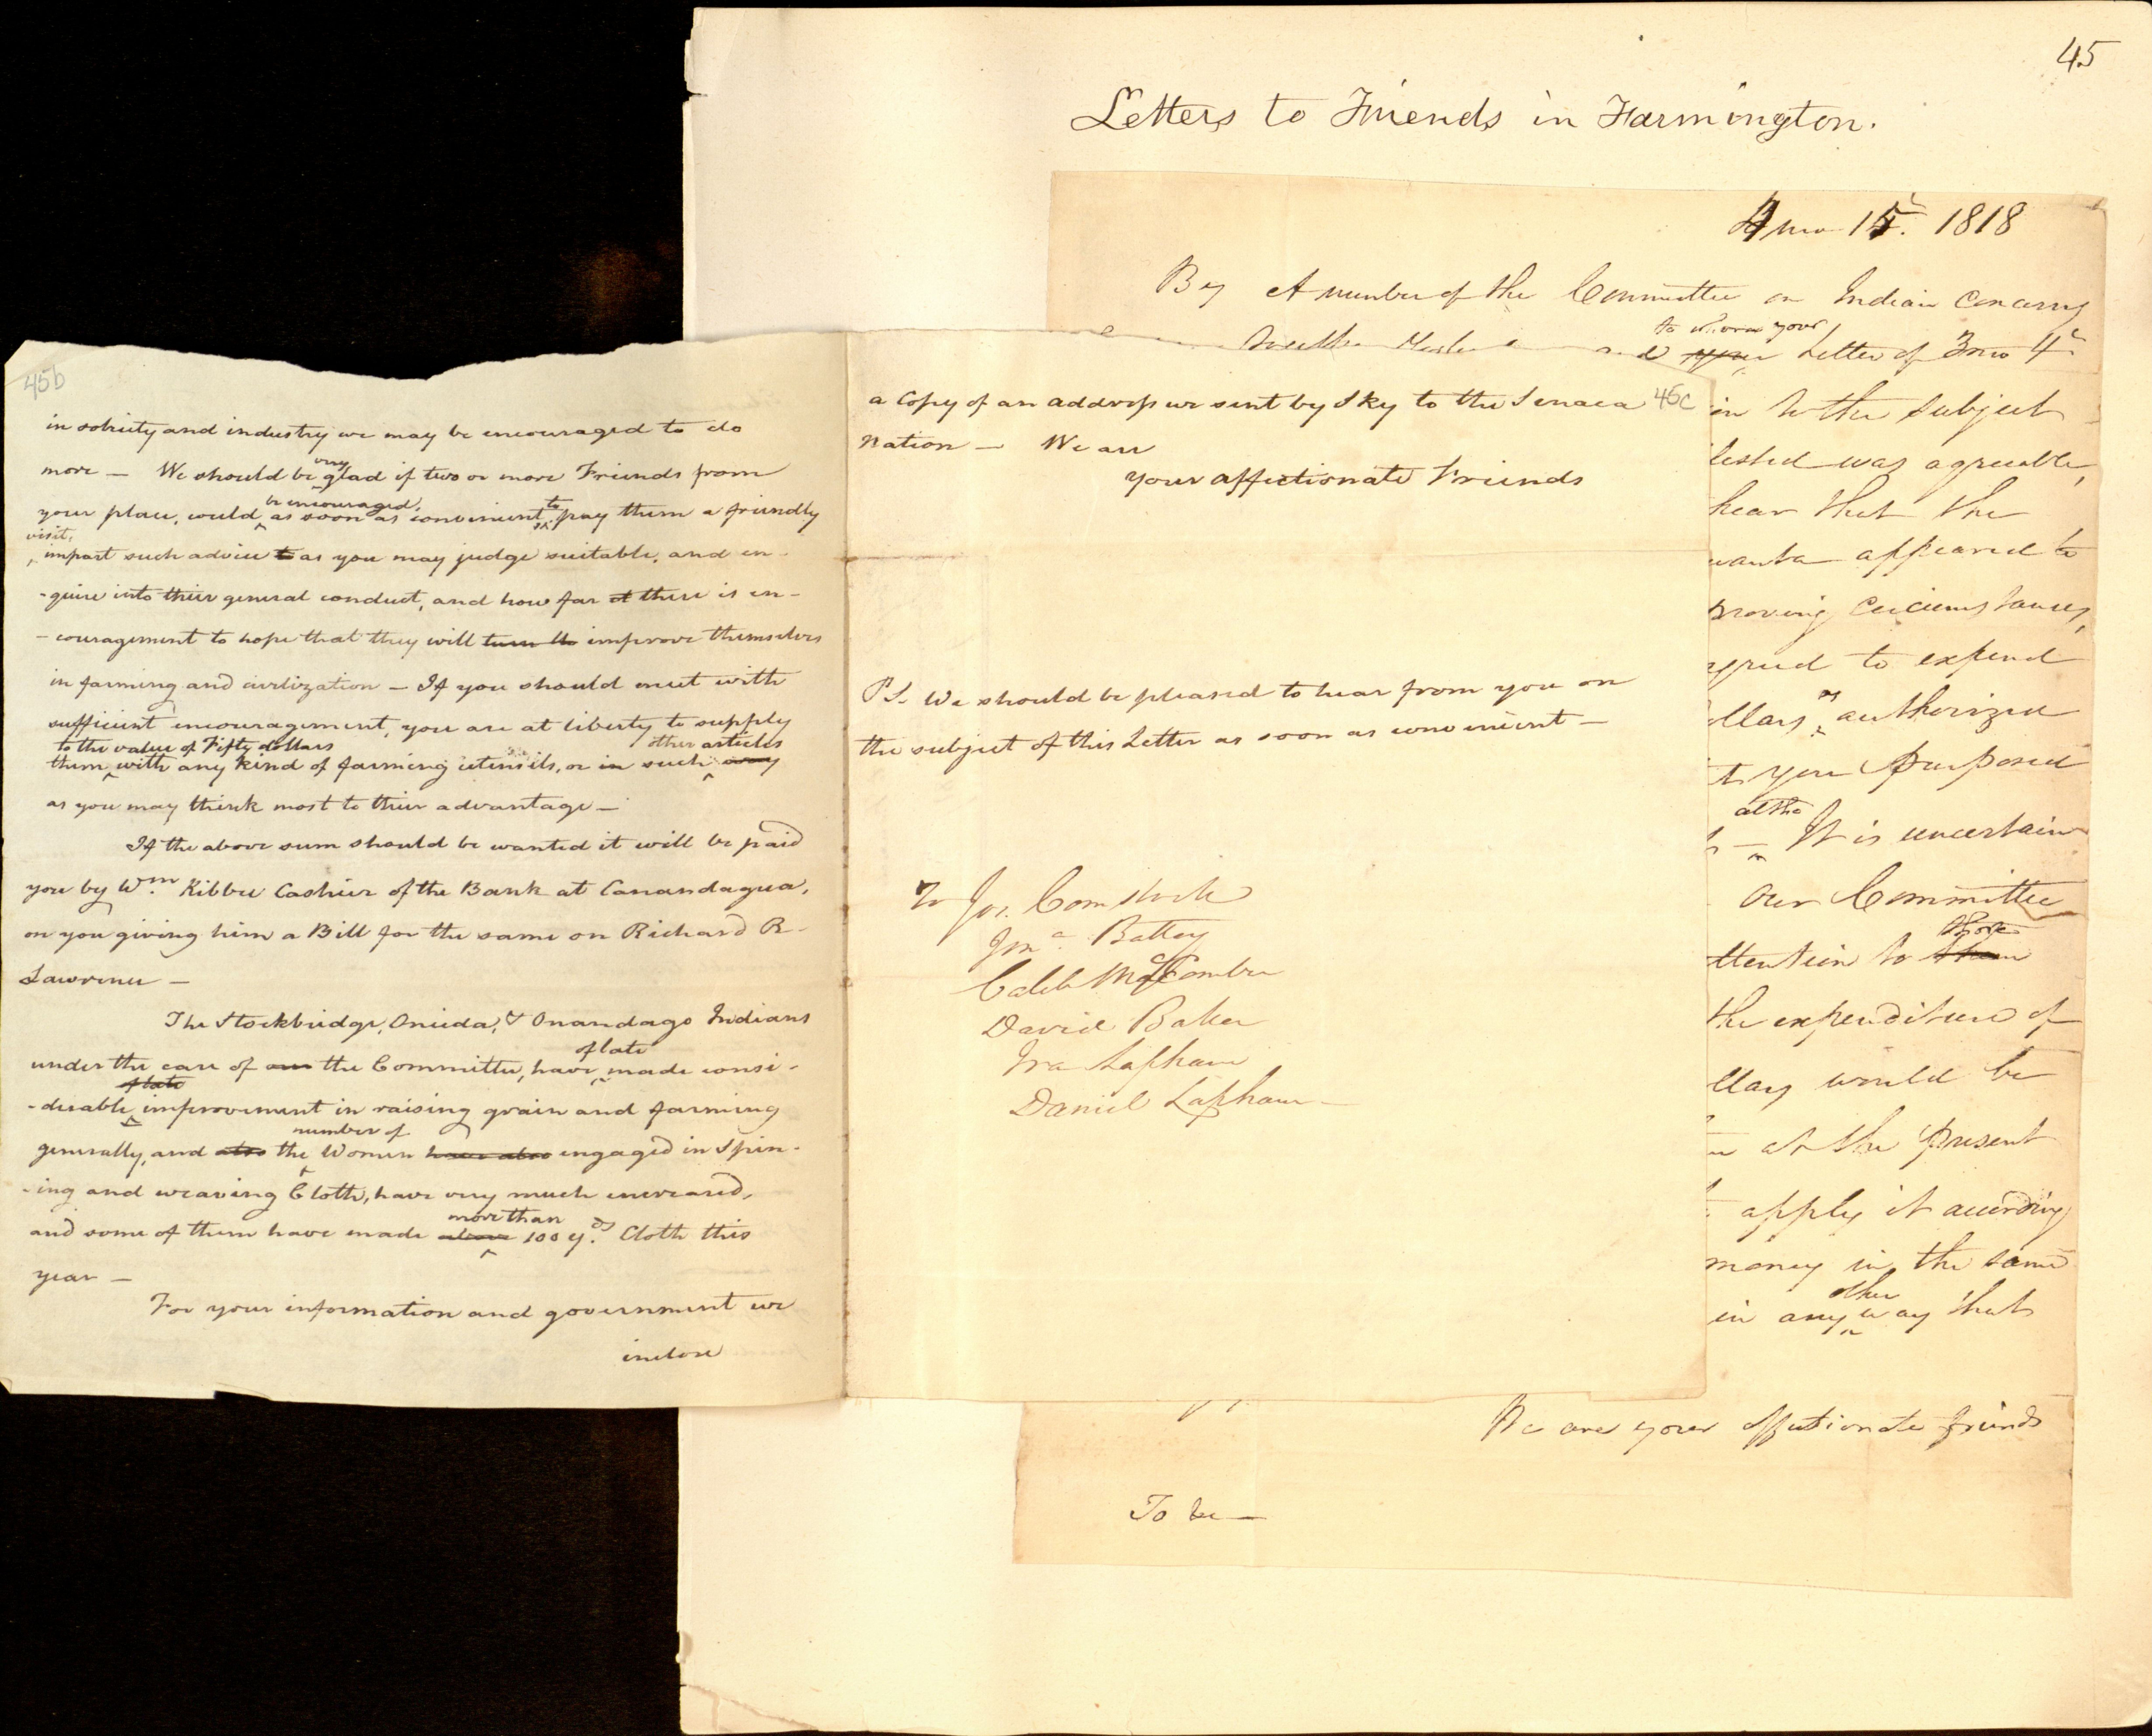 45
Letters to Friends in Farmington.
4 mo 15. 1818
By A number of the Committee on Indian Concerns
to whom your
your Letter of 3mo 4th
in to the subject
was agreeable,
hear that the
appeared to
proving Circumstances,
agreed to expend
ollars, authorized
t you purposed
altho
It is uncertain
Our Committee
those
ttention to them
the expenditure of
ollars would be
at the present
apply it according
money in the same
other
in any way that
We are your affectionate friends
To be—
45b
in sobriety and industry we may be encouraged to do
very
more — We should be glad if two or more Friends from
be encouraged, to
your place, would as soon as convenient pay them a friendly
visit,
impart such advice to as you may judge suitable, and en-
-quire into their general conduct, and how far it there is en-
-couragement to hope that they will turn the improve themselves
in farming and civilization — If you should meet with
sufficient encouragement, you are at liberty to supply
to the value of Fifty dollars other articles
them with any kind of farming utensils, or in such away
as you may think most to their advantage —
If the above sum should be wanted it will be paid
you by Wm. Kibbee Cashier of the Bank at Canandagua,
on you giving him a Bill for the same on Richard R.
Lawrence —
The Stockbridge, Oneida, & Onandago Indians
of late
under the care of our the Committee, have made consi-
of late
-derable improvement in raising grain and farming
number of
generally, and also the Women have also engaged in Spin-
-ing and weaving Cloth, have very much increased,
more than
and some of them have made above 100 yds. Cloth this
year —
For your information and government we
inclose
45c
a Copy of an address we sent by Sky to the Senaca
Nation — We are
your affectionate Friends
P.S. We should be pleased to hear from you on
the subject of this Letter as soon as convenient —
To Jos. Comstock
Jno. Battey
Caleb McComber
David Baker
Ira Lapham
Daniel Lapham